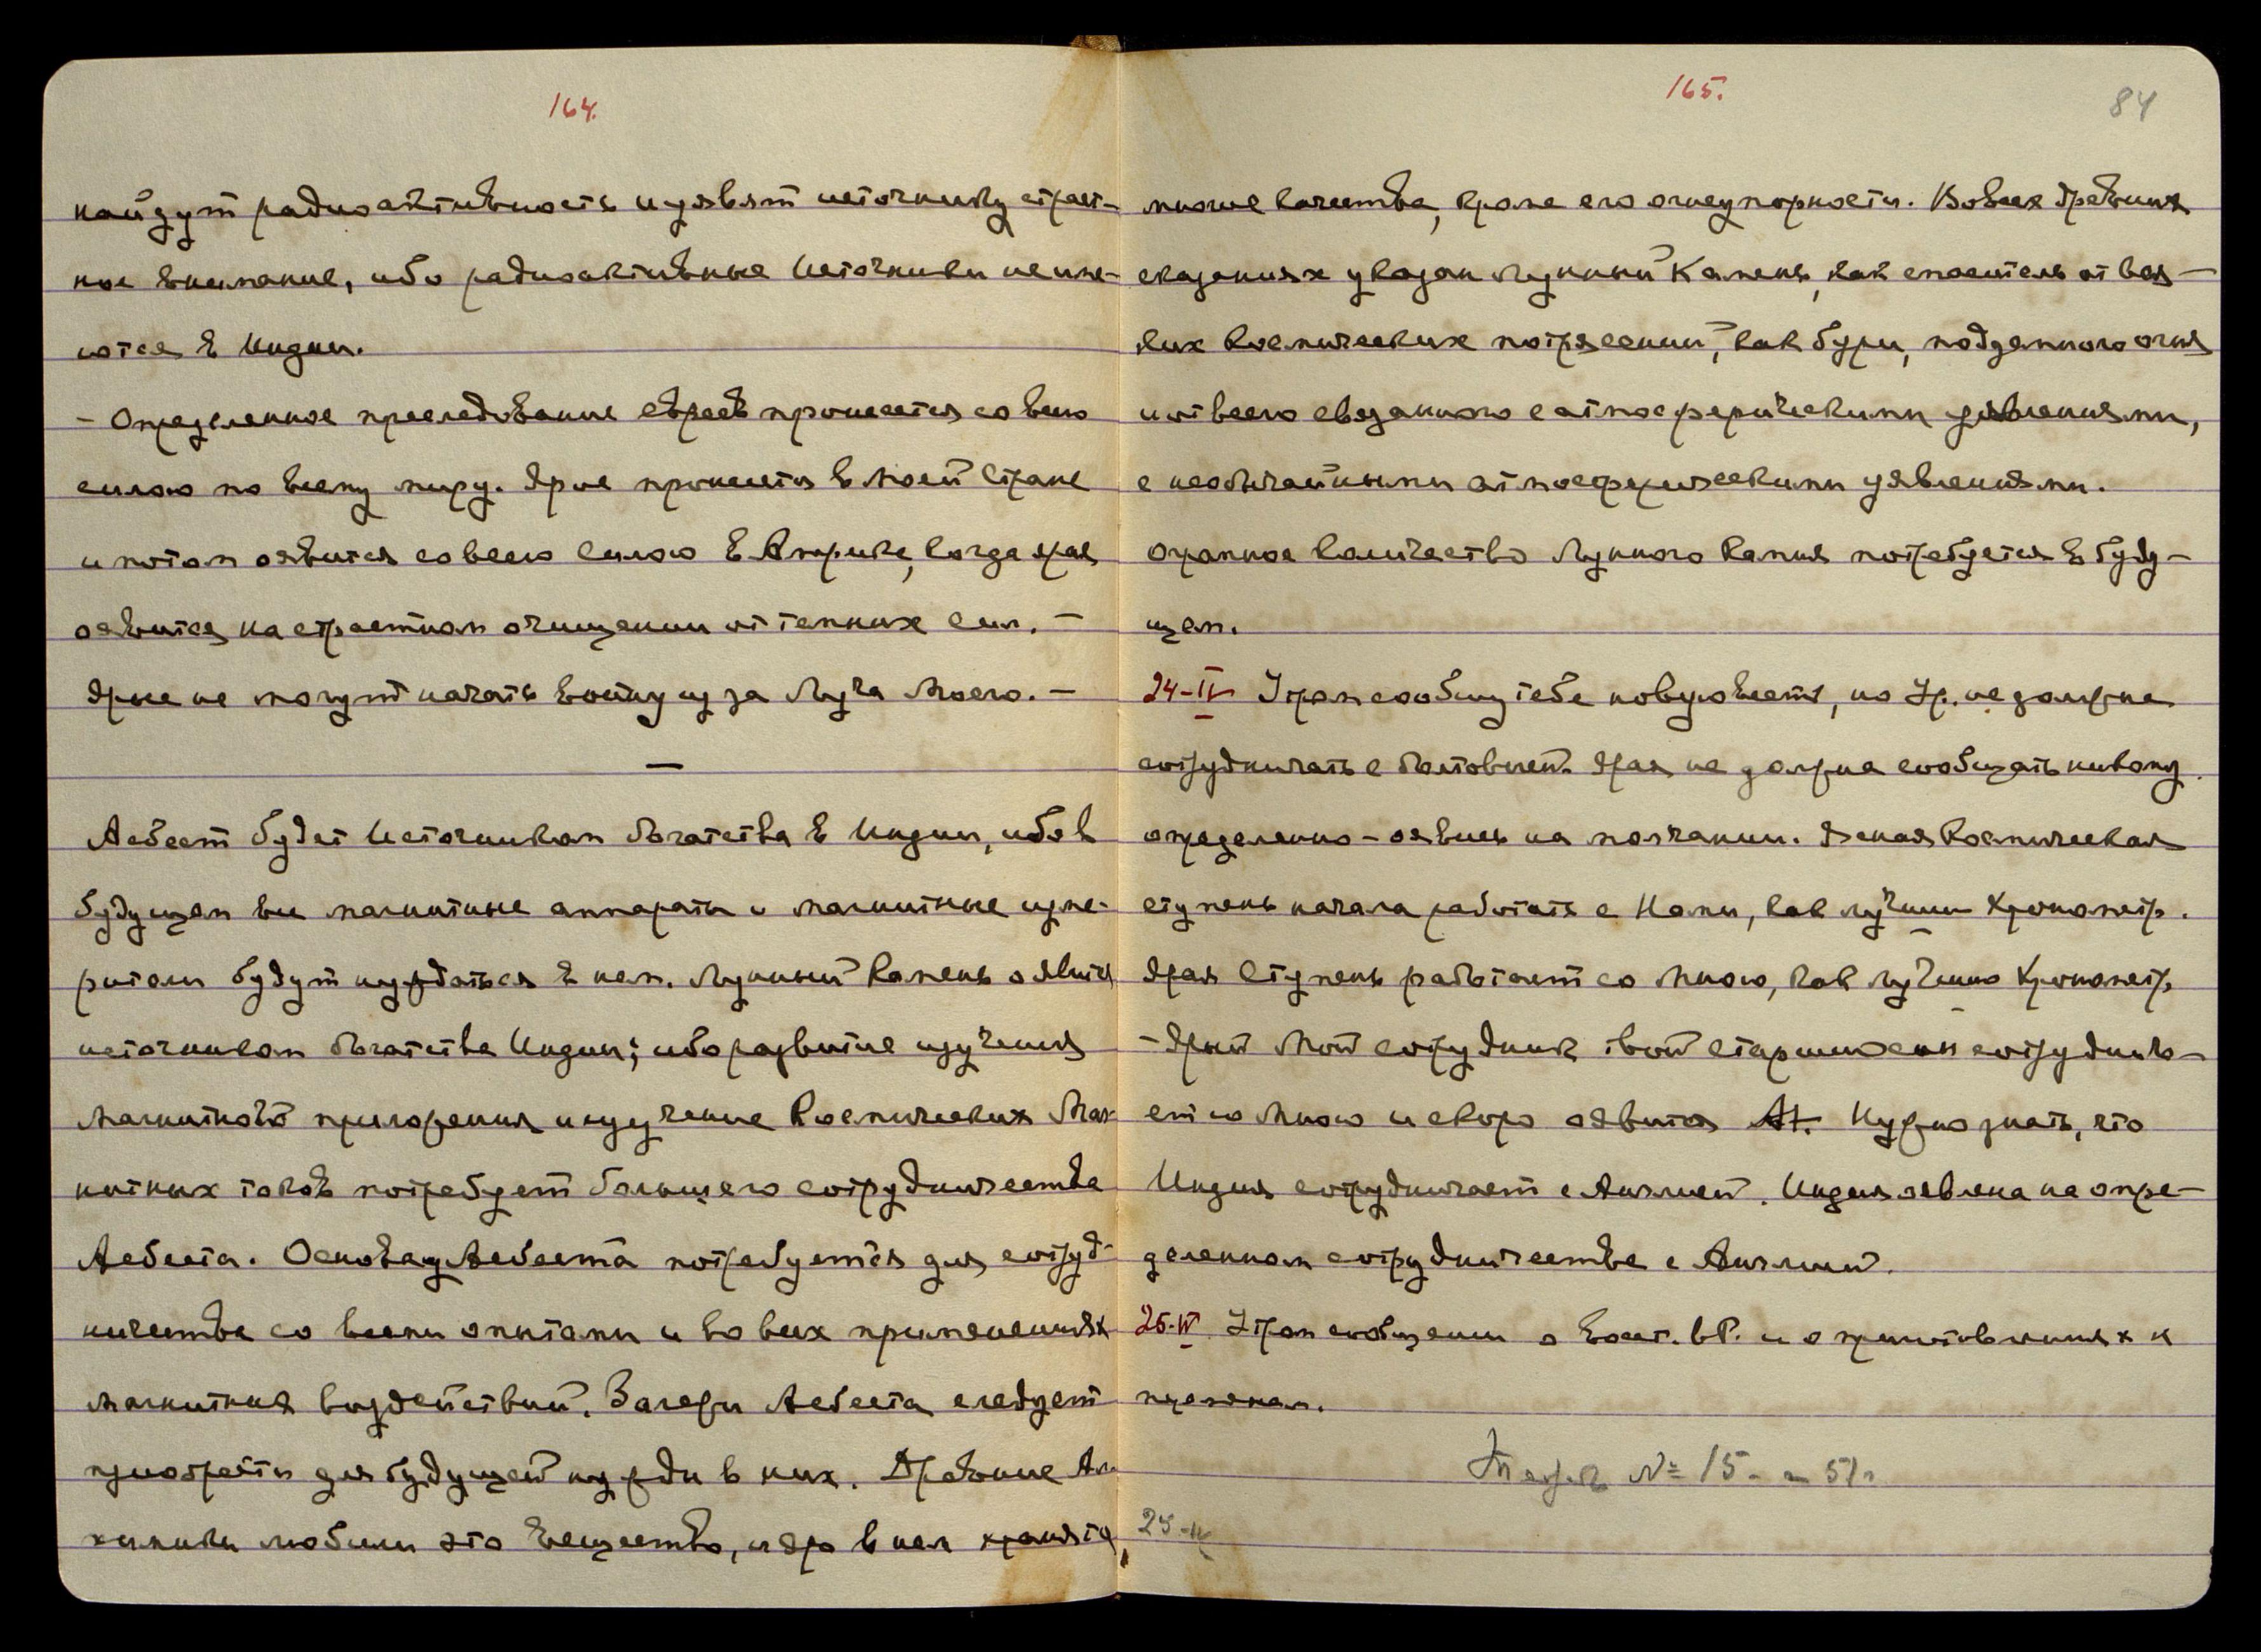 164.
найдут радиоактивность и уявят источнику страст-
ное внимание, ибо радиоактивные Источники име-
ются в Индии.
- Определенное преследование евреев пронесется со всею
силою по всему миру. Ярое пронесется в Моей Стране
и потом оявится со всею Силою в Америке, когда ярая
оявится на страстном очищении от темных сил. -
Ярые не могут начать войну из за Луча Моего. -
—
Асбест будет Источником богатства в Индии, ибо в
будущем все магнитные аппараты и магнитные изме-
рители будут нуждаться в нем. Лунный Камень оявится
источником богатства Индии; ибо развитие изучения
Магнитного притяжения и изучение Космических Маг-
нитных токов потребует большего сотрудничества
Асбеста. Основа Асбеста потребуется для сотруд-
ничества со всеми опытами и во всех применениях
магнитных воздействий. Залежи Асбеста следует
приобрести для будущей нужды в них. Древние Ал-
химики любили это вещество, и яро в нем хранятся
165.
84
многие качества, кроме его огнеупорности. Во всех древних
сказаниях указан Лунный Камень, как спаситель от вся-
ких космических потрясений, как бури, подземного огня
и от всего связанного с атмосферическими уявлениями,
с необычайными атмосферическими уявлениями.
Огромное количество Лунного Камня потребуется в буду-
щем.
24-IV Утром сообщу тебе новую весть, но Ур. не должна
сотрудничать с болтовней. Ярая не должна сообщать никому
определенно - оявись на молчании. Ясная Космическая
ступень начала работать с Нами, как лучший Хронометр.
Ярая Ступень работает со Мною, как лучший Хронометр.
- Ярый Мой сотрудник твой старший сын сотруднича-
ет со Мною и скоро оявится At. Нужно знать, что
Индия сотрудничает с Англией. Индия явлена на опре-
деленном сотрудничестве с Англией.
25-IV Утром сообщения о Вост. и о приготовлениях к
Тетрадь № 15 - 51 г.
25-IV